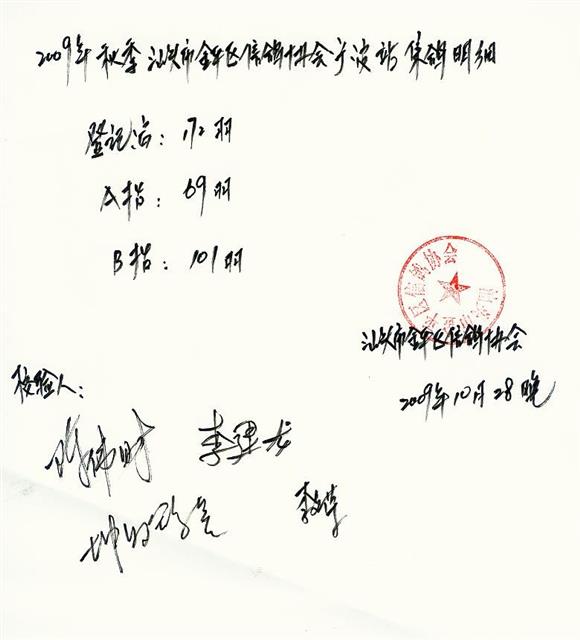 2009年秋季汕头市金平区信鸽协会宁波站集鸽明细
登记鸽: 172羽
A指: 69羽
B指: 101羽
汕头市金平区信鸽协会
汕头市金平区信鸽协会
2009年10月28晚
校验人:
李建龙